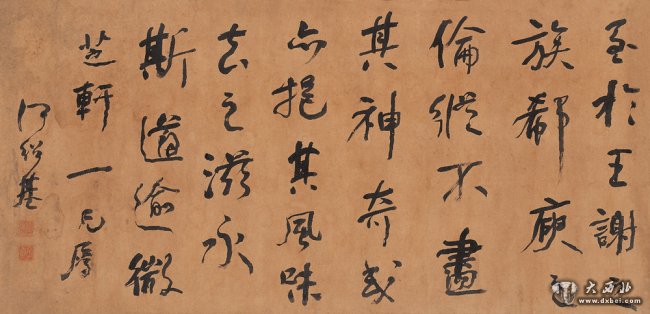 至於王謝之
族郗庾之
倫縱不盡
其神奇咸
亦挹其風味
去之滋永
斯道逾微
芝軒一兄屬
何紹基
大西北
www.dxbei.com